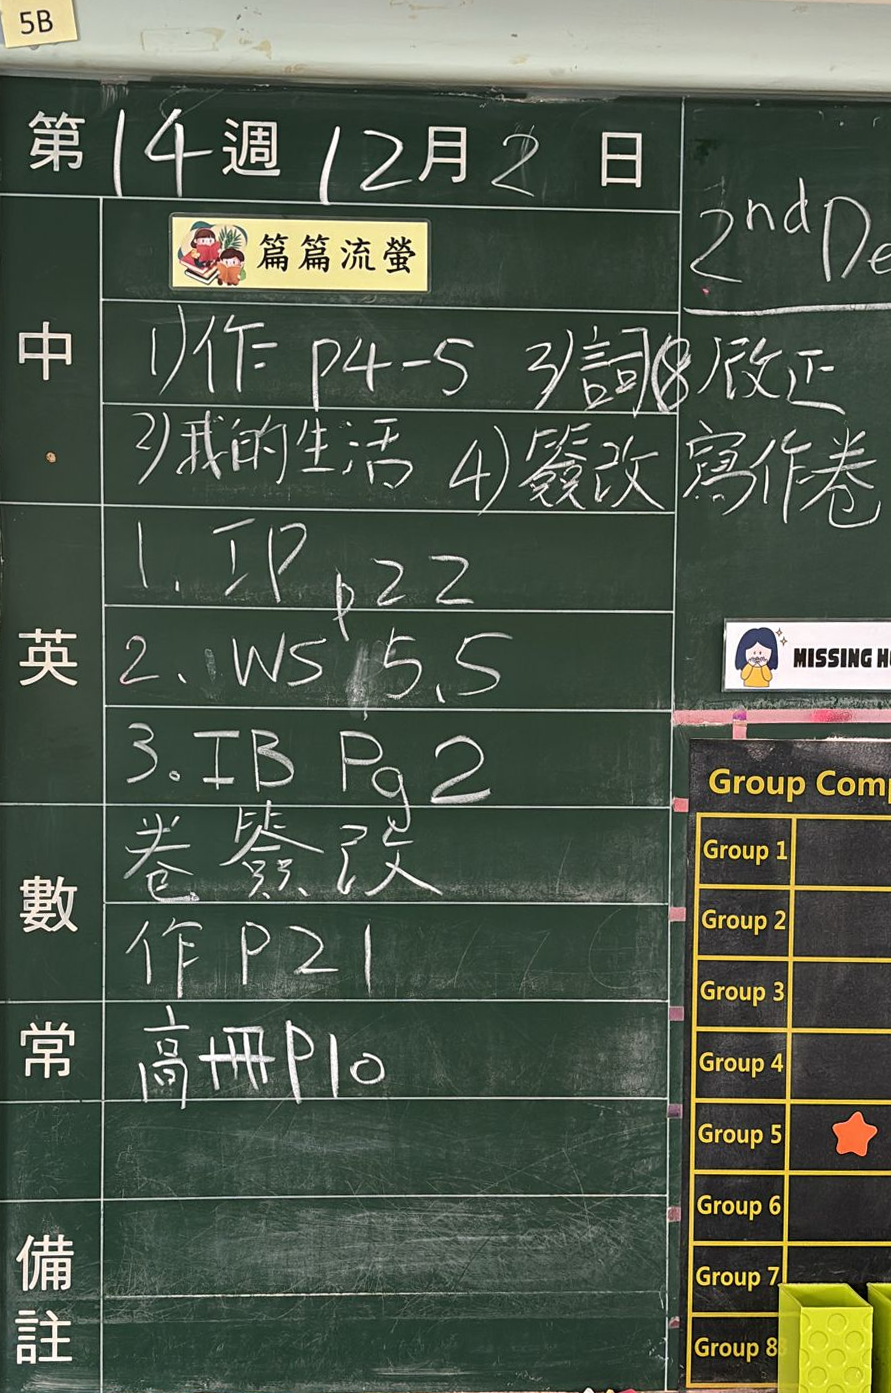 5B
第14週12月2日
2nd De
篇篇流螢
中
1)作 P4-5 3)詞(8)改正
2)我的生活 4)簽改 寫作卷
英
1. IP p22
2. WS 5.5
3. IB Pg 2
MISSING H
數
卷簽改
作 P21
常
高冊P10
備註
Group Comp
Group 1
Group 2
Group 3
Group 4
Group 5
Group 6
Group 7
Group 8